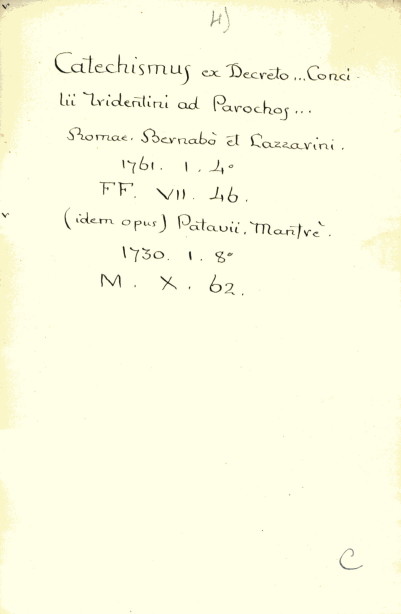 4)
Catechismus ex Decreto... Conci-
lii Tridentini ad Parochos...
Romae. Bernabò et Lazzarini.
1761. 1. 4°
FF. VII. 46.
(idem opus) Patavii. Manfrè.
1730. 1. 8°
M. X. 62.
C